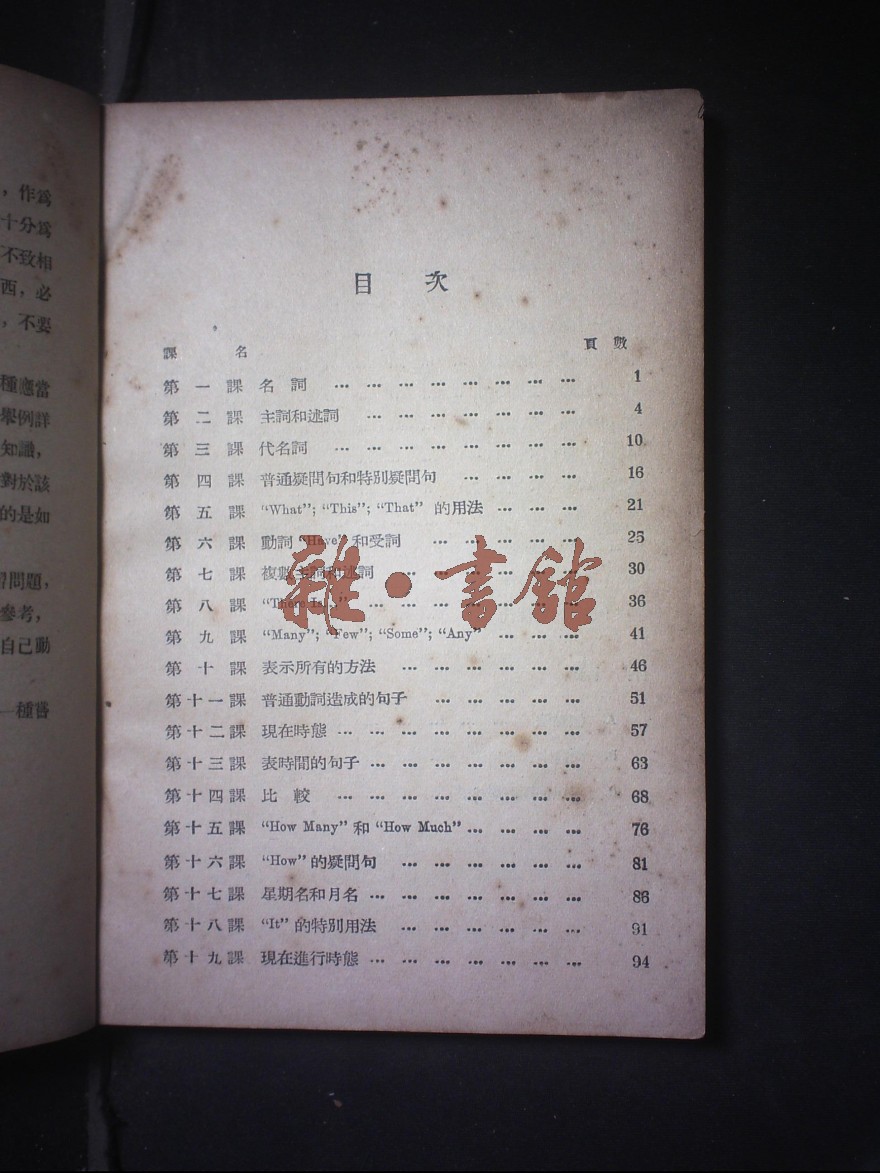 ，作爲
十分爲
不致相
西，必
，不要
種應當
舉例詳
知識，
對於該
的是如
習問題，
參考，
自己動
一種嘗
目 次
課 名 頁 數
第 一 課 名 詞 … … … … … … … … 1
第 二 課 主詞和述詞 … … … … … … … 4
第 三 課 代名詞 … … … … … … … … 10
第 四 課 普通疑問句和特別疑問句 … … … … 16
第 五 課 “What”; “This”; “That” 的用法 … … … 21
第 六 課 動詞 “Have” 和受詞 … … … … … 25
第 七 課 複數主詞和述詞 … … … … … … 30
第 八 課 “There Is…” … … … … … … … 36
第 九 課 “Many”; “Few”; “Some”; “Any” … … … 41
第 十 課 表示所有的方法 … … … … … … 46
第十一課 普通動詞造成的句子 … … … … … 51
第十二課 現在時態 … … … … … … … … 57
第十三課 表時間的句子 … … … … … … … 63
第十四課 比 較 … … … … … … … … 68
第十五課 “How Many” 和 “How Much” … … … … 76
第十六課 “How” 的疑問句 … … … … … … 81
第十七課 星期名和月名 … … … … … … … 86
第十八課 “It” 的特別用法 … … … … … … 91
第十九課 現在進行時態 … … … … … … … 94
雜·書館